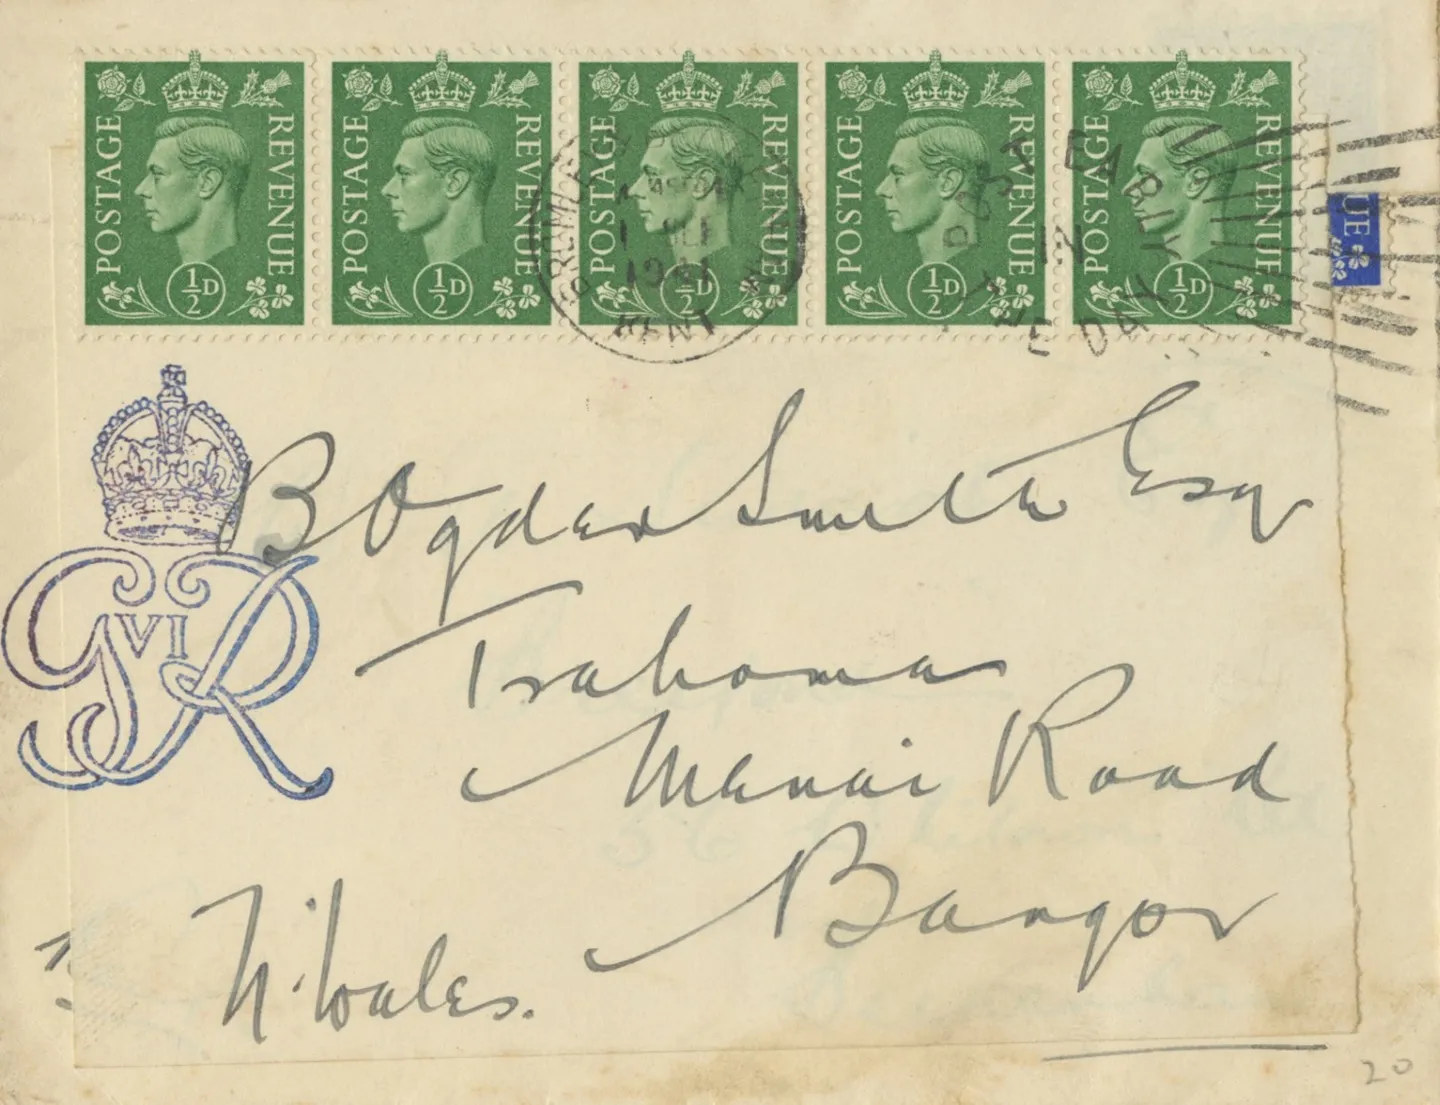 POSTAGE REVENUE ½D
POSTAGE REVENUE ½D
POSTAGE REVENUE ½D
POSTAGE REVENUE ½D
POSTAGE REVENUE ½D
BROMLEY
1941
KENT
POST EARLY
IN
THE DAY
UE
G VI R
B Ogden Smith Esq
Trahoma
Menai Road
Bangor
N. Wales.
20